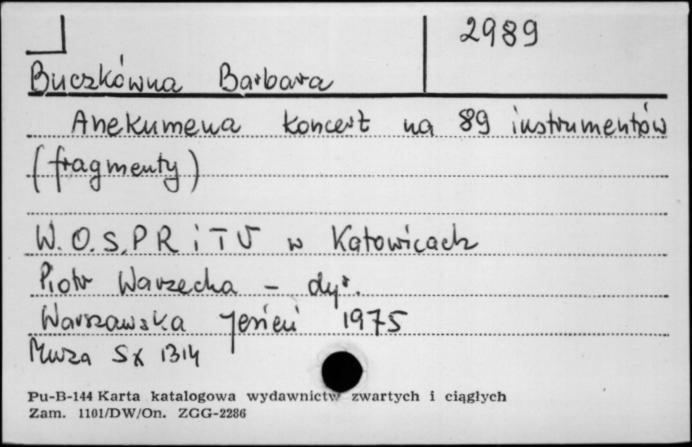 2989
Buczkówna Barbara
Anekumena koncert na 89 instrumentów
(fragmenty)
W.O.S.PR i TV w Katowicach
Piotr Warzecha - dyr.
Warszawska Jesień 1975
Muza SX 1314
Pu-B-144 Karta katalogowa wydawnictw zwartych i ciągłych
Zam. 1101/DW/On. ZGG-2286